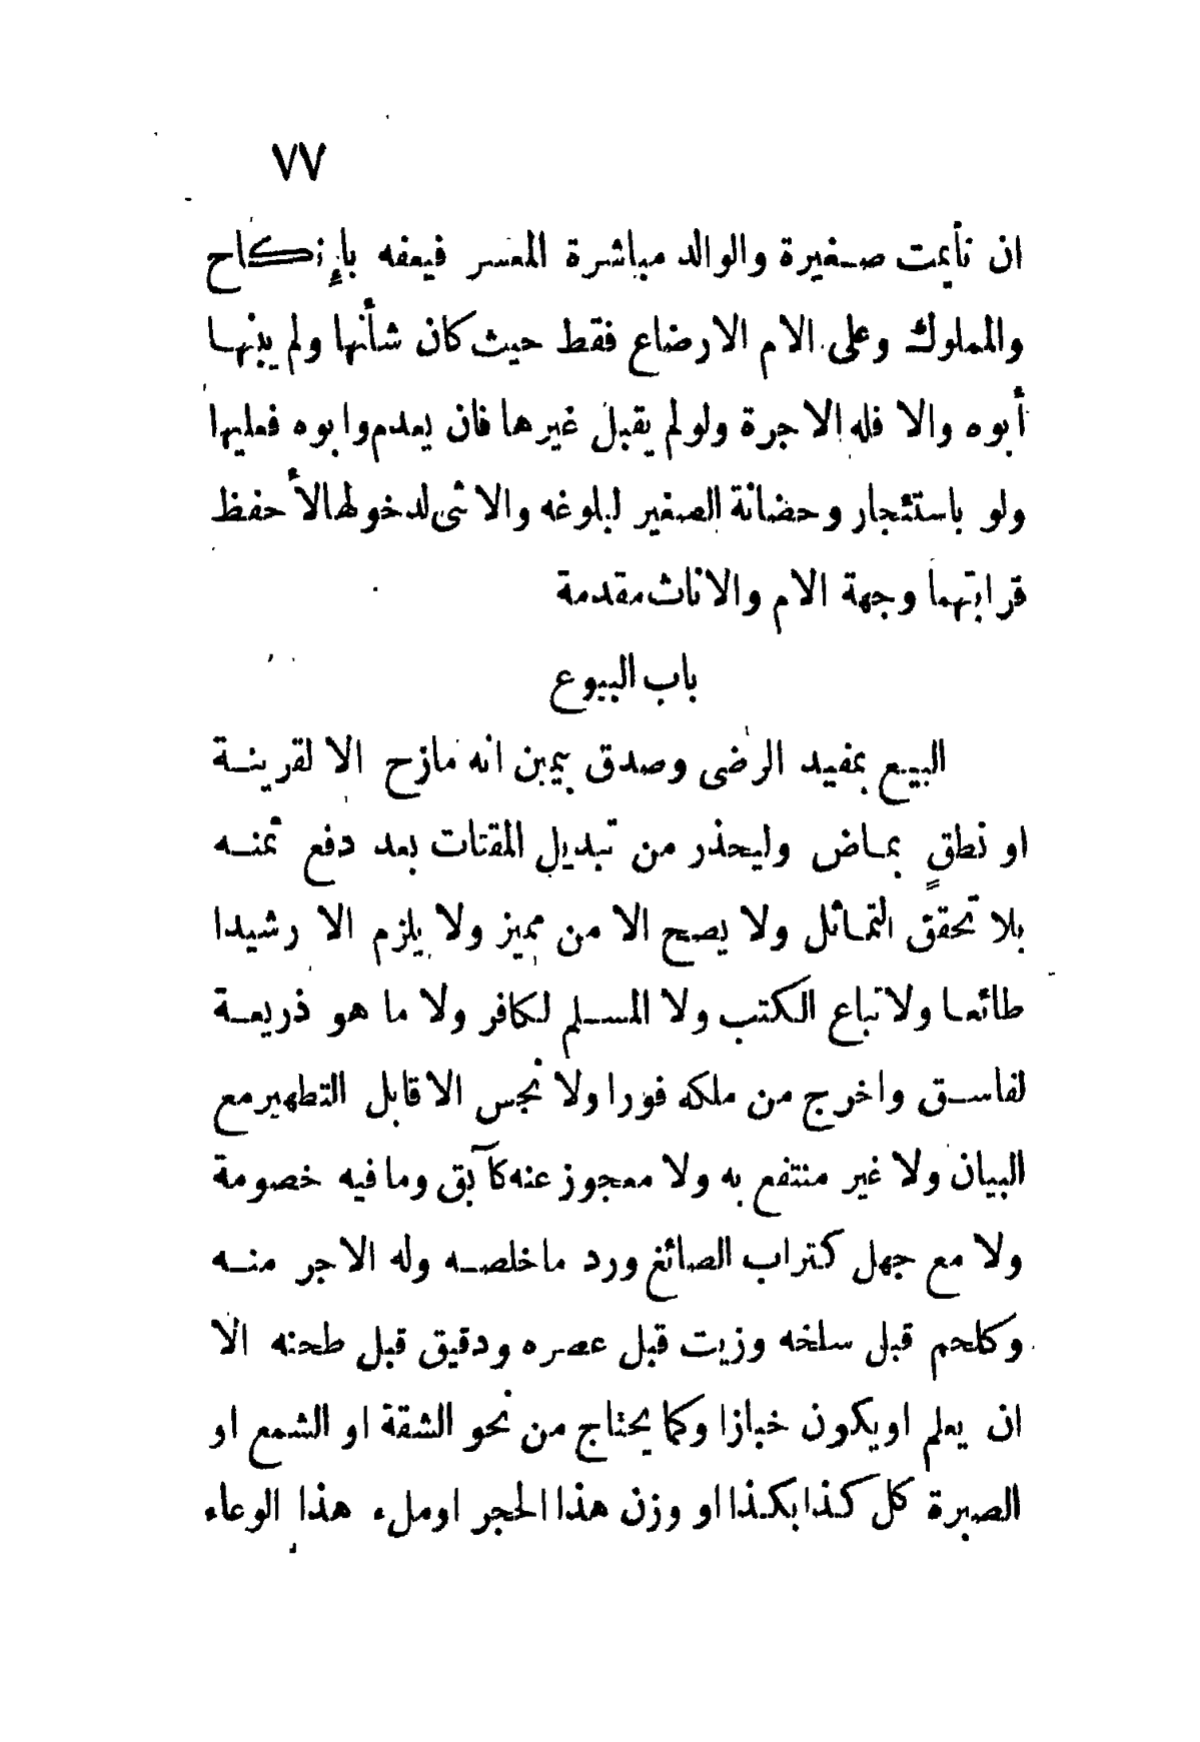 ٧٧
ان تأيمت صغيرة والوالد مباشرة المعسر فيعفه بإنكاح
والمملوك وعلى الام الارضاع فقط حيث كان شأنها ولم يبنها
أبوه والا فله الاجرة ولو لم يقبل غيرها فان يعدم وابوه فعليها
ولو باستئجار وحضانة الصغير لبلوغه والانثى لدخولها لأحفظ
قرابتهما وجهة الام والاناث مقدمة
باب البيوع
البيع بمفيد الرضى وصدق بيمين انه مازح الا لقرينة
او نطقٍ بماض وليحذر من تبديل المقتات بعد دفع ثمنه
بلا تحقق التماثل ولا يصح الا من مميز ولا يلزم الا رشيدا
طائعا ولا تباع الكتب ولا المسلم لكافر ولا ما هو ذريعة
لفاسق واخرج من ملكه فورا ولا نجس الا قابل التطهير مع
البيان ولا غير منتفع به ولا معجوز عنه كآبق وما فيه خصومة
ولا مع جهل كتراب الصائغ ورد ما خلصه وله الاجر منه
وكلحم قبل سلخه وزيت قبل عصره ودقيق قبل طحنه الا
ان يعلم او يكون خبازا وكما يحتاج من نحو الشقة او الشمع او
الصبرة كل كذا بكذا او وزن هذا الحجر او ملء هذا الوعاء